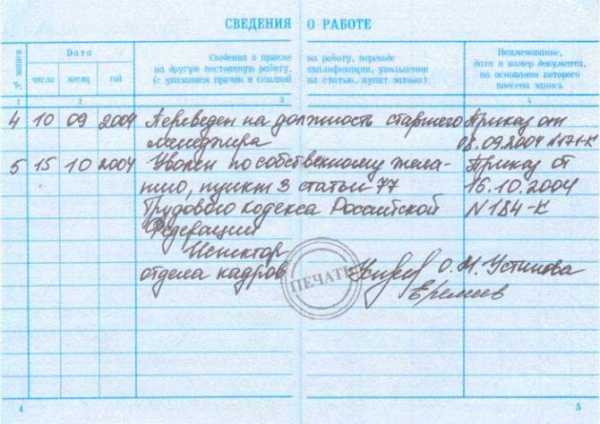 СВЕДЕНИЯ О РАБОТЕ
№ записи
Дата
число месяц год
Сведения о приеме на работу, переводе
на другую постоянную работу, квалификации, увольнении
(с указанием причин и ссылкой на статью, пункт закона)
Наименование,
дата и номер документа,
на основании которого
внесена запись
1 2 3 4
4 10 09 2004 Переведен на должность старшего Приказ от
менеджера 08.09.2004 №171-К
5 15 10 2004 Уволен по собственному жела- Приказ от
нию, пункт 3 статьи 77 15.10.2004
Трудового кодекса Российской N184-К
Федерации
Инспектор
отдела кадров ПЕЧАТЬ О.М. Устинова
Еремеев
4 5